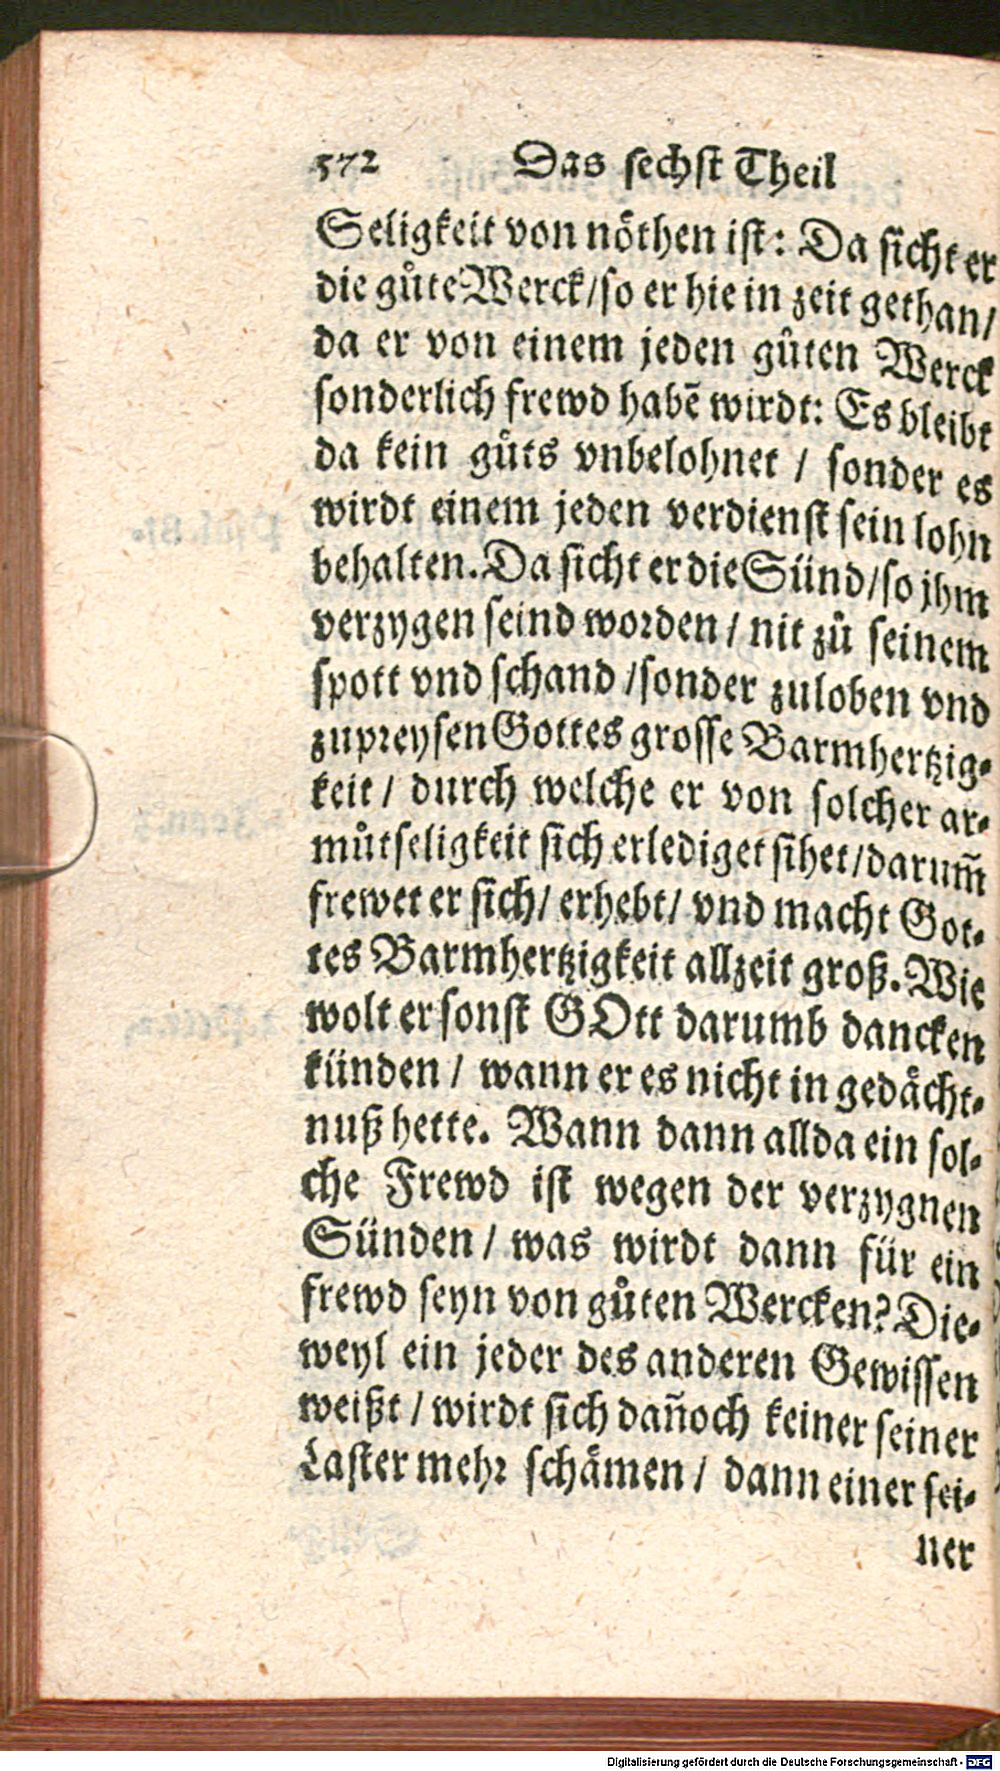 572 Das sechst Theil
Seligkeit von nöthen ist: Da sicht er
die gůte Werck/so er hie in zeit gethan/
da er von einem jeden gůten Werck
sonderlich frewd habē wirdt: Es bleibt
da kein gůts vnbelohnet / sonder es
wirdt einem jeden verdienst sein lohn
behalten. Da sicht er die Sünd/so jhm
verzygen seind worden / nit zů seinem
spott vnd schand /sonder zuloben vnd
zupreysen Gottes grosse Barmhertzig-
keit / durch welche er von solcher ar-
můtseligkeit sich erlediget sihet/darum̄
frewet er sich/ erhebt/ vnd macht Got-
tes Barmhertzigkeit allzeit groß. Wie
wolt er sonst GOtt darumb dancken
künden / wann er es nicht in gedächt-
nuß hette. Wann dann allda ein sol-
che Frewd ist wegen der verzygnen
Sünden / was wirdt dann für ein
frewd seyn von gůten Wercken? Die-
weyl ein jeder des anderen Gewissen
weißt / wirdt sich dañoch keiner seiner
Laster mehr schämen / dann einer sei-
ner
Digitalisierung gefördert durch die Deutsche Forschungsgemeinschaft - DFG